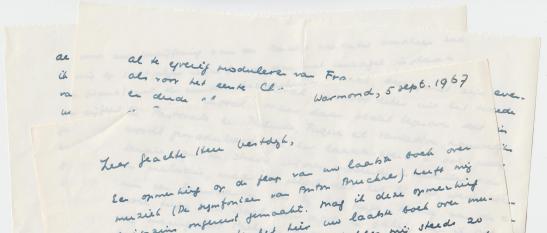 al te ijverig moduleren van Fra.
als voor het eerste Cl.
en derde " "
Warmond, 5 sept. 1967
Zeer geachte Heer Vestdijk,
Een opmerking op de flap van uw laatste boek over
muziek (De symfonieën van Anton Bruckner) heeft mij
ongerust gemaakt. Mag ik deze opmerking
het hier uw laatste boek over mu-
mij steeds zo